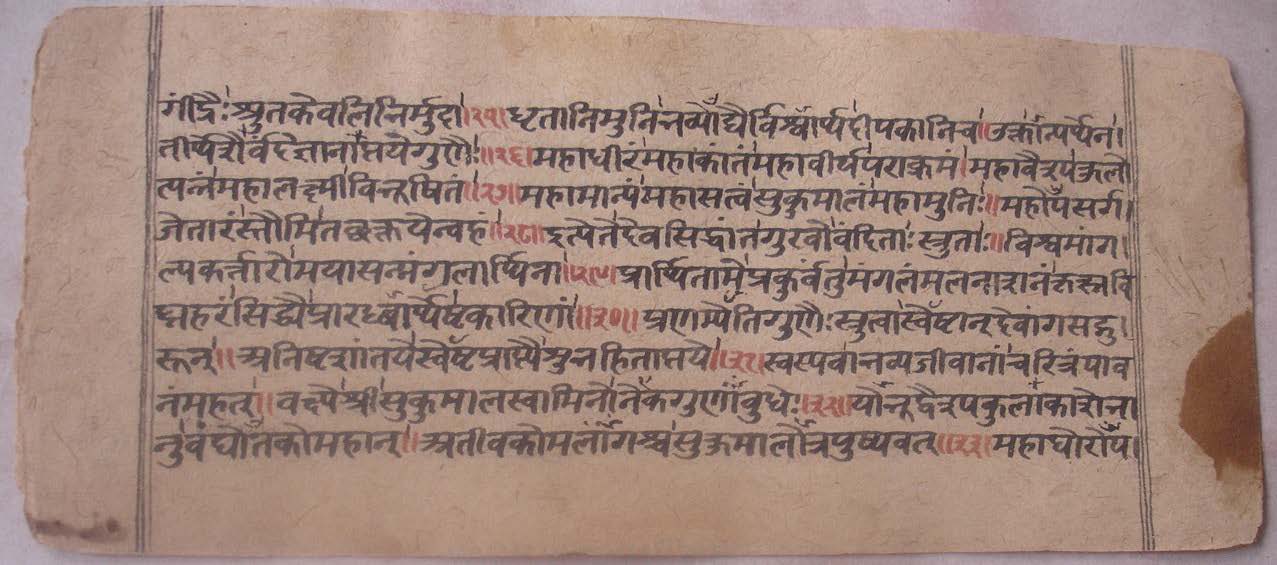 गींद्रैः श्रुतकेवलिनिर्मुदा ॥२५॥ धृतानि मुनिभव्यौघैर्विश्वार्थदीपकानि च॥ अक्तात्पर्थेन
तीर्थेशैर्वंदिज्ञानाप्तये गुणैः ॥२६॥ महाधीरं महाकांतं महावीर्यपराक्रमं। महावैरूपकुलो
त्पन्नं महालक्ष्मीविभूषितं ॥२७॥ महामान्यं महासत्वं सुकुमालं महामुनिः॥ महोपसर्ग
जेतारं स्तौमि तछक्तयेन्वहं ॥२८॥ इत्येते देवसिद्धांतगुरवो वंदिताः स्तुताः॥ विश्वमांग
ल्यकर्त्तारो मया सन्मंगलार्थिना ॥२९॥ प्रार्थिता मे प्रकुर्वंतु मंगलं मलनाशनं कृत्स्नवि
घ्नहरं सिद्ध्यै प्रारब्धार्थेष्टकारिणां ॥३०॥ प्रणम्येति गुणैः स्तुत्वा स्वेष्टान् देवांगसद्गु
रून्॥ अनिष्टशांतये स्वेष्टप्राप्त्यै श्रुतहिताप्तये ॥३१॥ स्वस्य वा भव्यजीवानां चरित्रं पाव
नं महत्॥ वक्ष्ये श्रीसुकुमालस्वामिनो नैकगुणांबुधेः ॥३२॥ यो भूद्वैरूपकुलाकाशे भा
नु र्वंघोतको महान्॥ अतीवकोमलांगश्च सुकुमालो त्र पुष्पवत् ॥३३॥ महाघोरोप